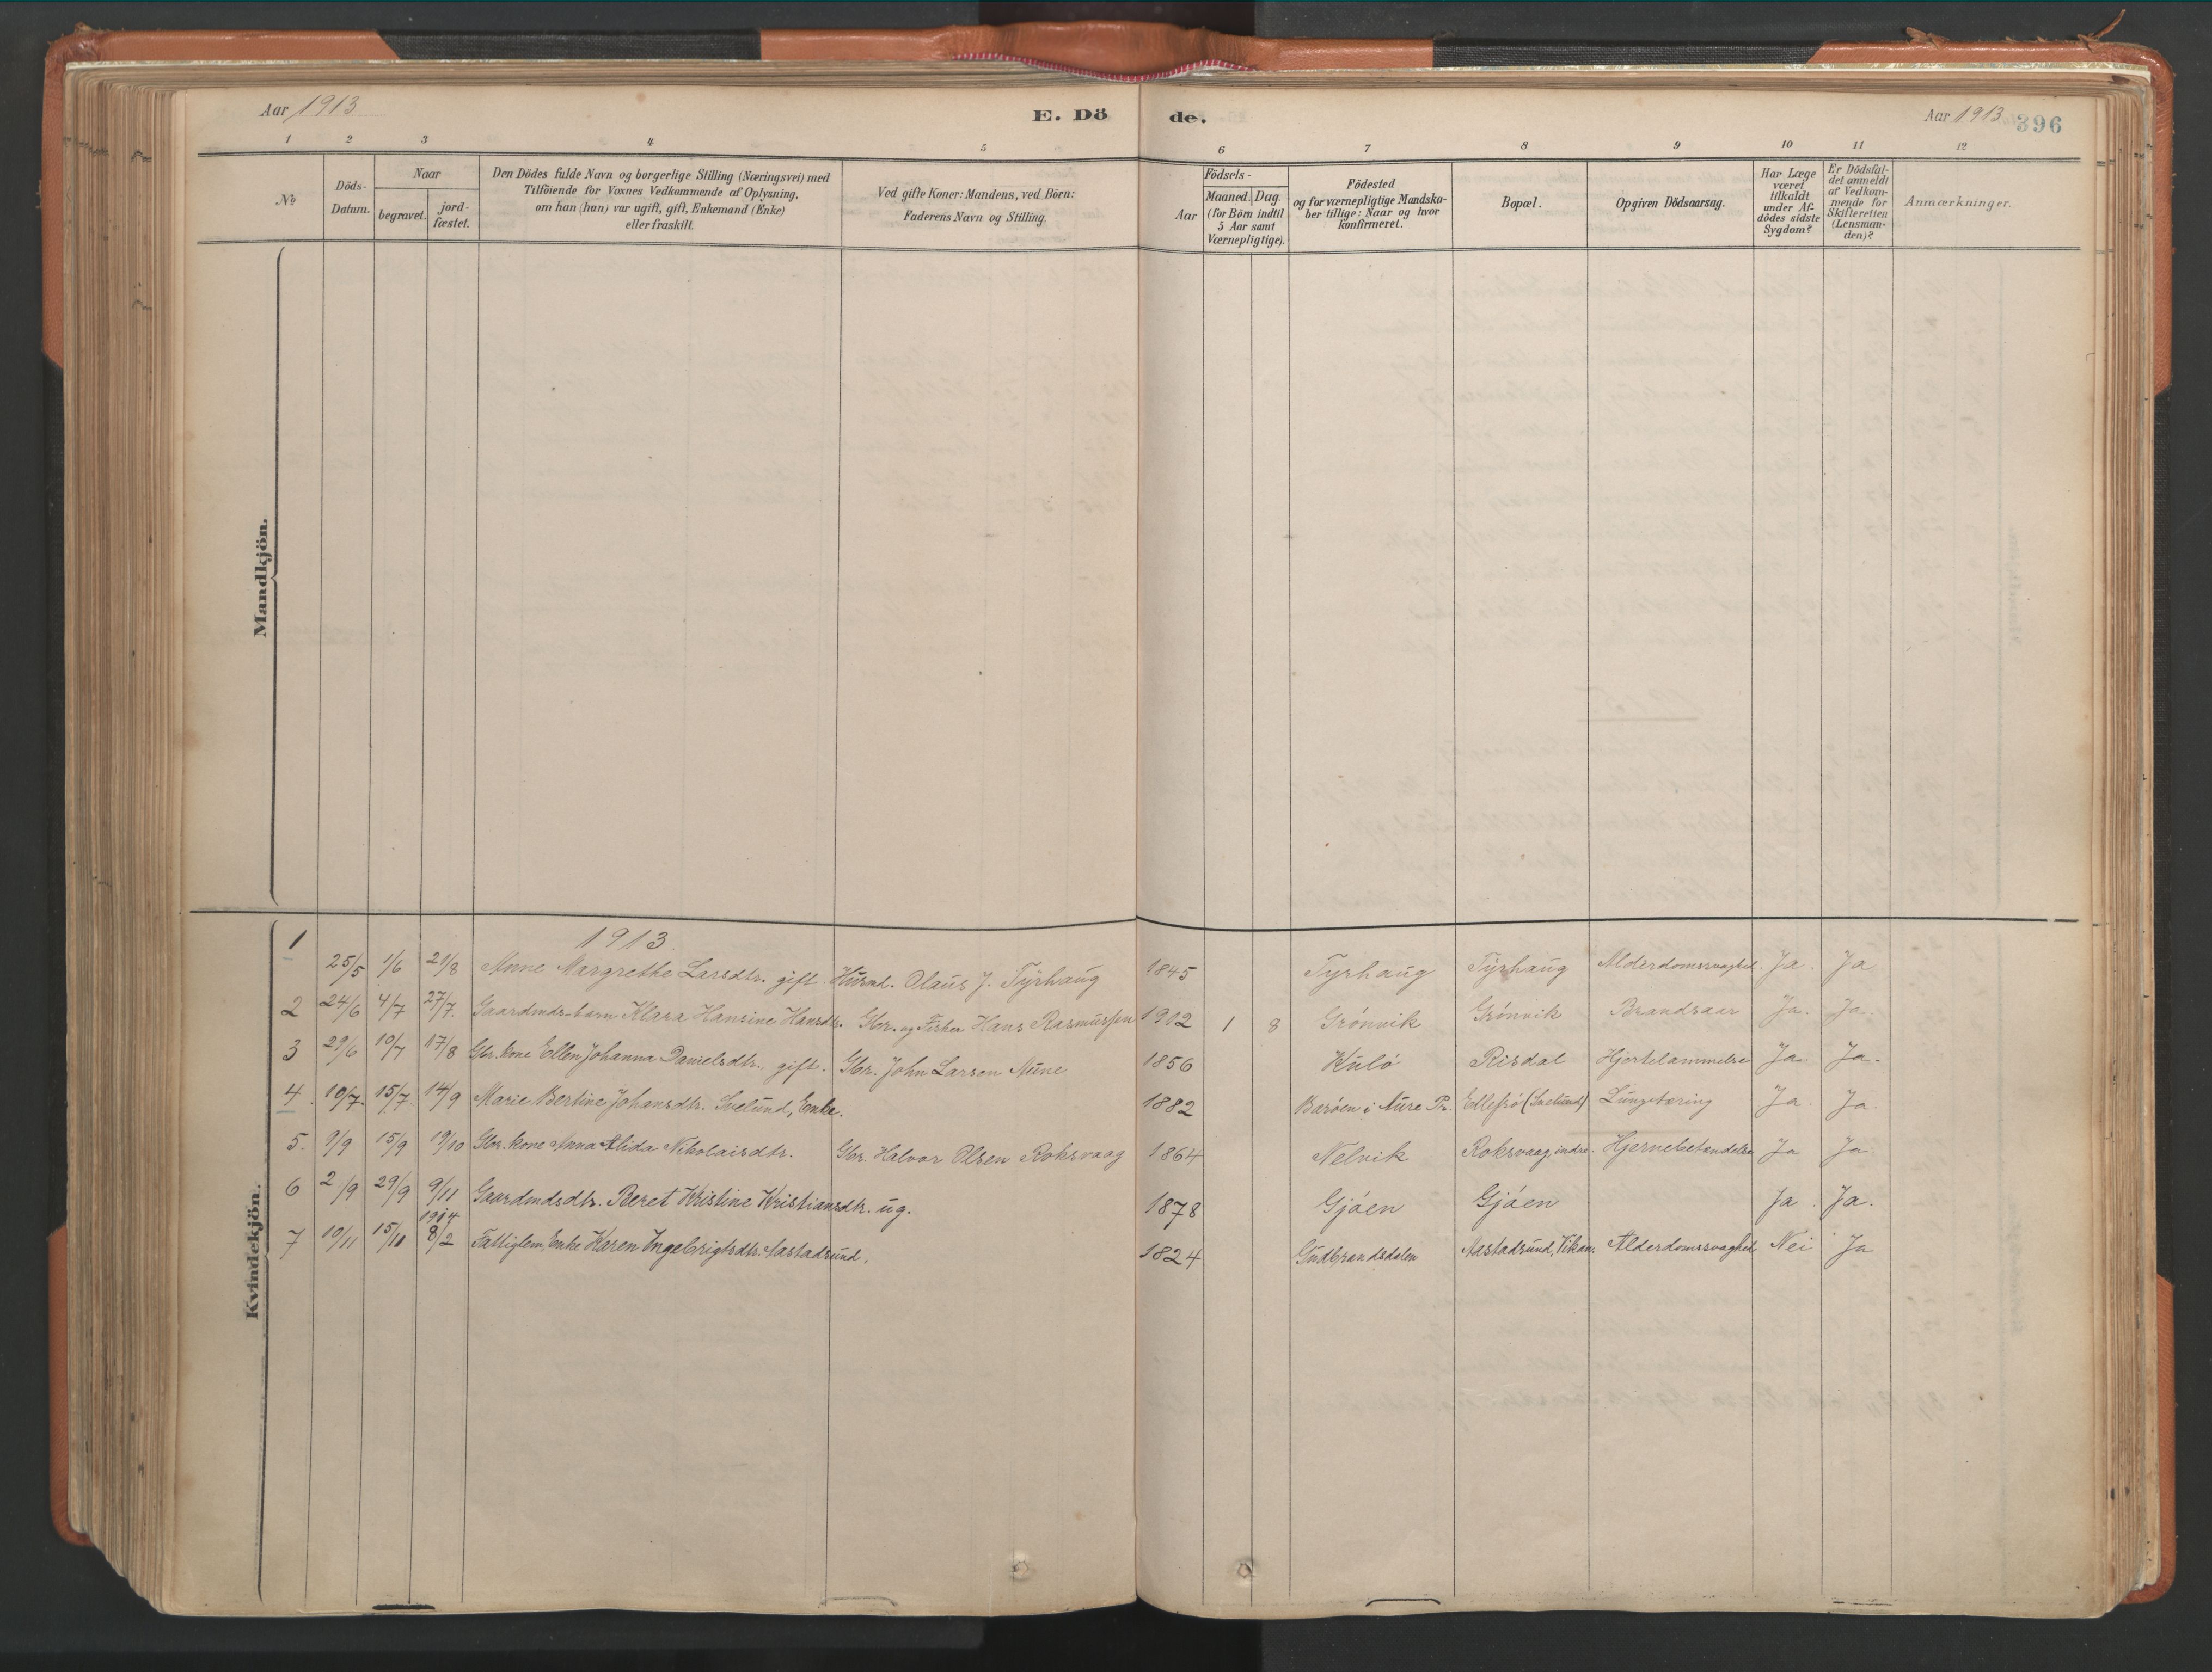 Aar 1913
E. Dö
de.
Aar 1913
396
1 2 3 4 5 6 7 8 9 10 11 12
No
Döds-Datum.
Naar
begravet.
jord-fæstet.
Den Dödes fulde Navn og borgerlige Stilling (Næringsvei) med
Tilföiende for Voxnes Vedkommende af Oplysning,
om han (hun) var ugift, gift, Enkemand (Enke)
eller fraskilt.
Ved gifte Koner: Mandens, ved Börn:
Faderens Navn og Stilling.
Födsels-
Aar
Maaned.
Dag
(for Börn indtil
5 Aar samt
Værnepligtige).
Födested
og for værnepligtige Mandska-
ber tillige: Naar og hvor
konfirmeret.
Bopæl.
Opgiven Dödsaarsag.
Har Læge
været
tilkaldt
under Af-
dödes sidste
Sygdom?
Er Dödsfal-
det anmeldt
af Vedkom-
mende for
Skifteretten
(Lensman-
den)?
Anmærkninger.
Mandkjön.
Kvindekjön.
1913
1 25/5 1/6 21/8 Anne Margrethe Larsdtr. gift. Husmd. Olaus J. Tyrhaug 1845 Tyrhaug Tyrhaug Alderdomssvaghed. Ja. Ja
2 24/6 4/7 27/7. Gaardmds-barn Klara Hansine Hansdtr. Gbr. og Fisker Hans Rasmussen 1902 1 8 Grönvik Grönvik Brandsaar Ja. Ja.
3 29/6 10/7 17/8 Gbr. kone Ellen Johanna Danielsdtr., gift. Gbr. John Larsen Aune 1856 Kulö Risdal Hjertelammelse Ja. Ja.
4. 10/7. 15/7 14/9 Marie Bertine Johansdtr. Svelund, Enke. 1882 Barøen i Aure Pr. Edlefsö (Svelund) Lungetæring Ja. Ja.
5. 9/9 15/9 19/10 Gbr. kone Anna Alida Nikolaisdtr. Gbr. Halvor Olsen Roksvaag 1864 Nelvik Roksvaag, indre. Hjernebetændelse Ja Ja.
6 2/9 29/9 9/11 Gaardmdsdtr. Beret Kristine Kristiansdtr. ug. 1878 Gjöen Gjöen Ja. Ja.
7 10/11 15/11 1914 8/2 Fattiglem, Enke Karen Ingebrigtsdtr. Aastadsund. 1824 Gudbrandsdalen Aastadsund, Vikan. Alderdomssvaghed Nei Ja